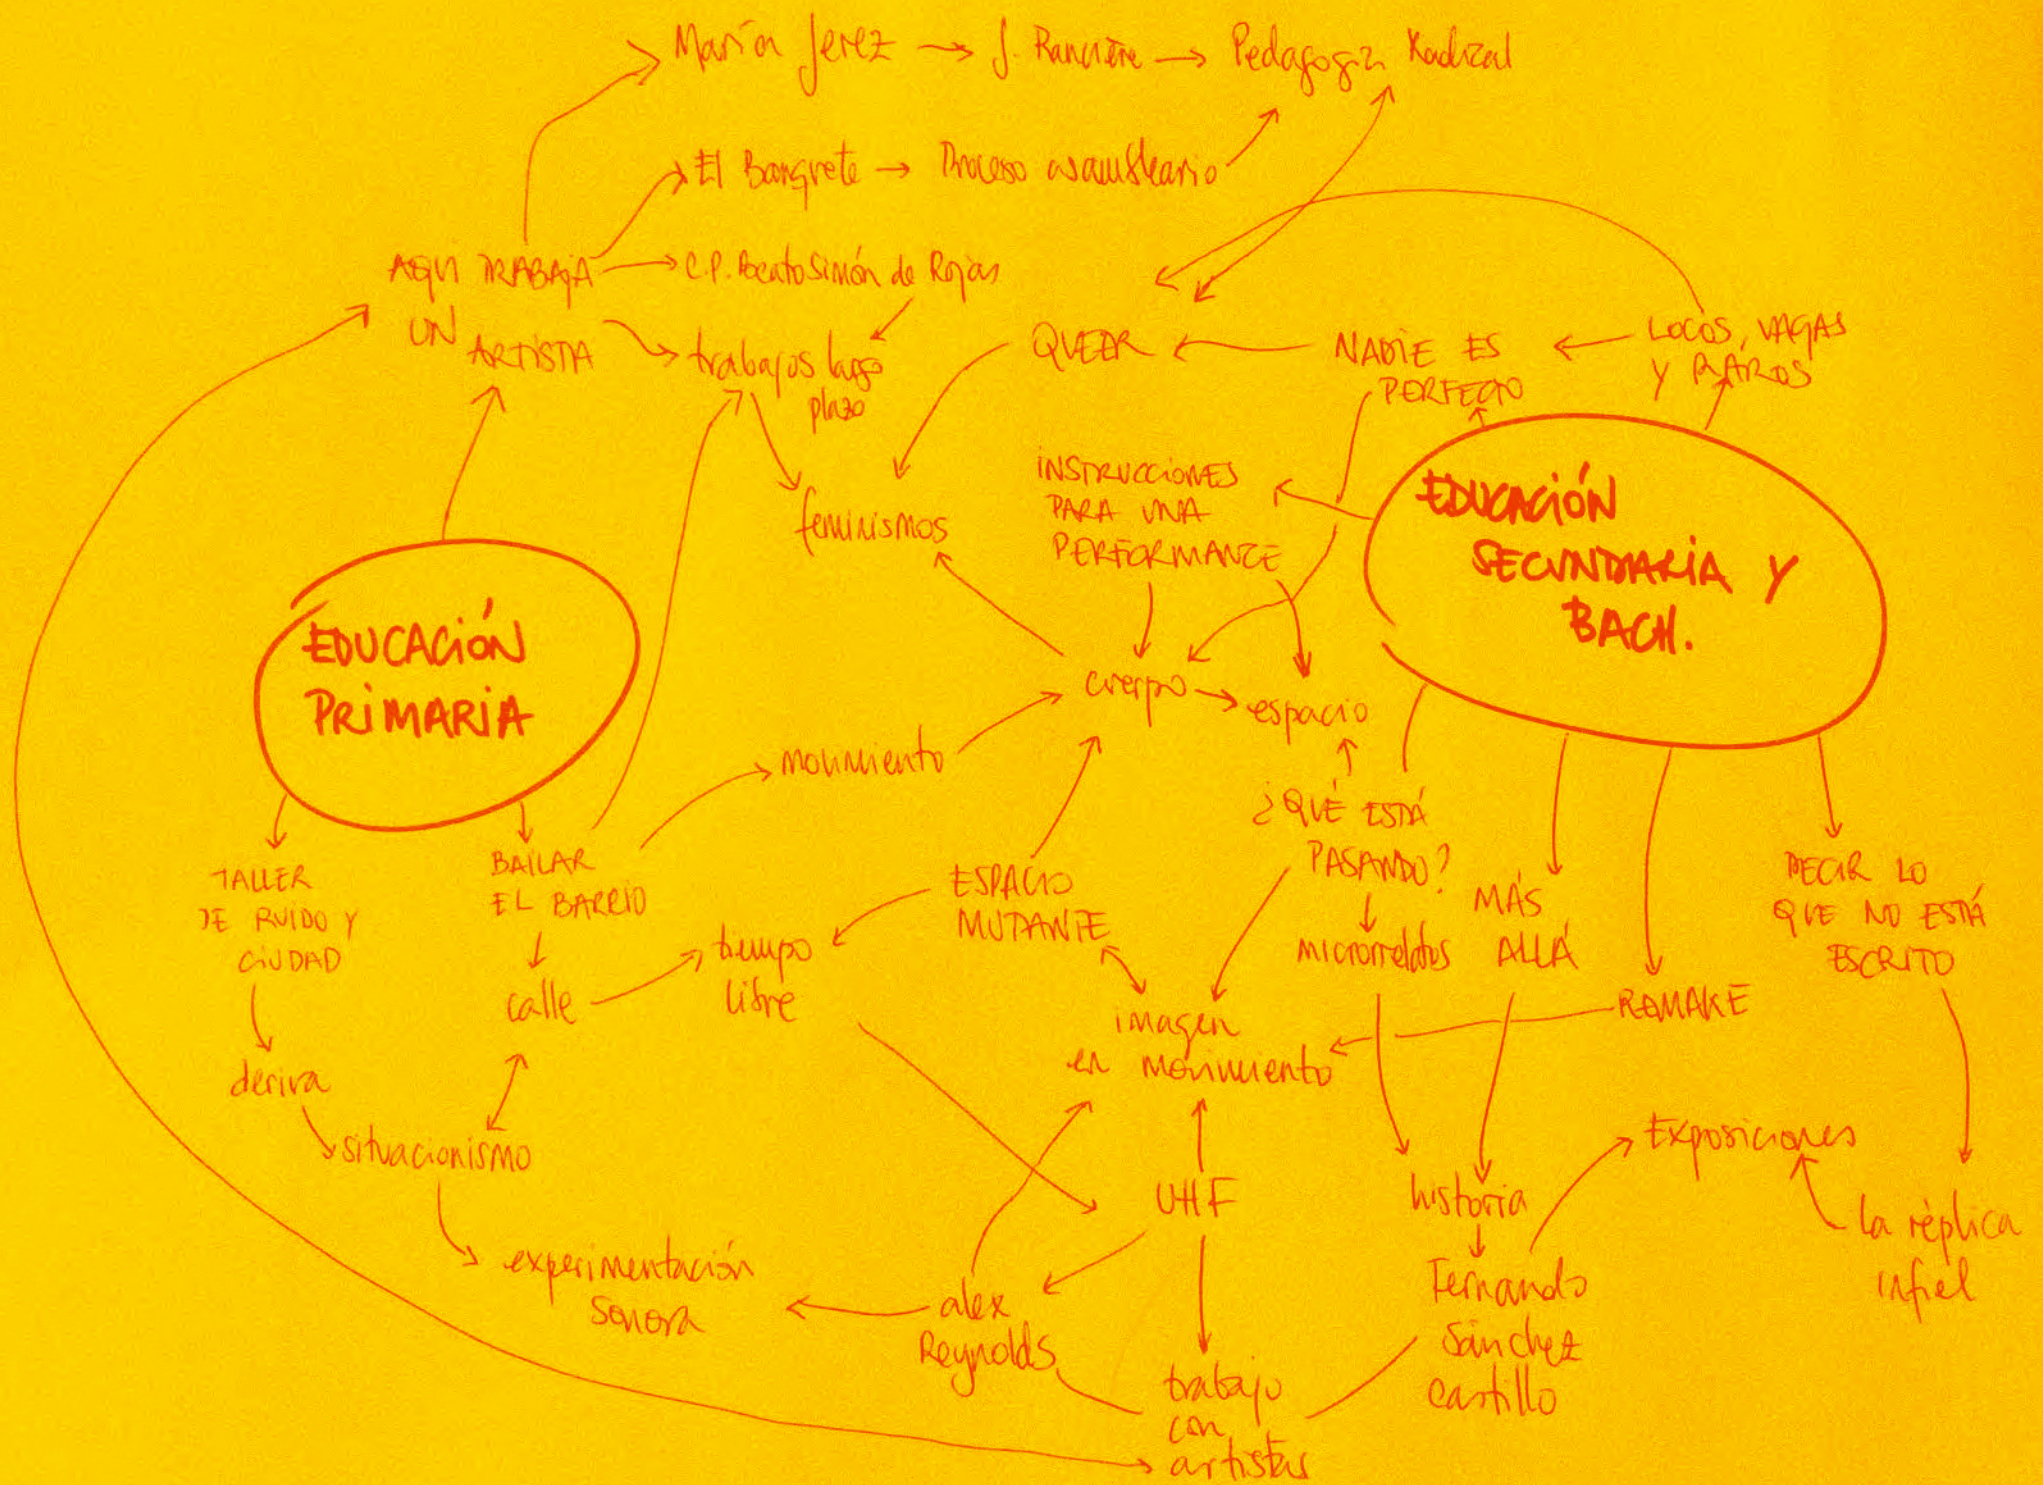 María Jerez → J. Rancière → Pedagogía Radical
El Banquete → Proceso asambleario
AQUI TRABAJA
UN
ARTISTA
C.P. Beato Simón de Rojas
trabajos largo
plazo
QUEER
NADIE ES
PERFECTO
LOCOS, VAGAS
Y RAROS
feminismos
INSTRUCCIONES
PARA UNA
PERFORMANCE
EDUCACIÓN
SECUNDARIA Y
BACH.
EDUCACIÓN
PRIMARIA
cuerpo
espacio
movimiento
¿QUÉ ESTÁ
PASANDO?
TALLER
DE RUIDO Y
CIUDAD
BAILAR
EL BARRIO
ESPACIO
MUTANTE
microrrelatos
MÁS
ALLÁ
DECIR LO
QUE NO ESTÁ
ESCRITO
calle
tiempo
libre
imagen
en movimiento
REMAKE
deriva
situacionismo
Exposiciones
UHF
historia
la réplica
infiel
experimentación
sonora
alex
Reynolds
Fernando
Sánchez
Castillo
trabajo
con
artistas